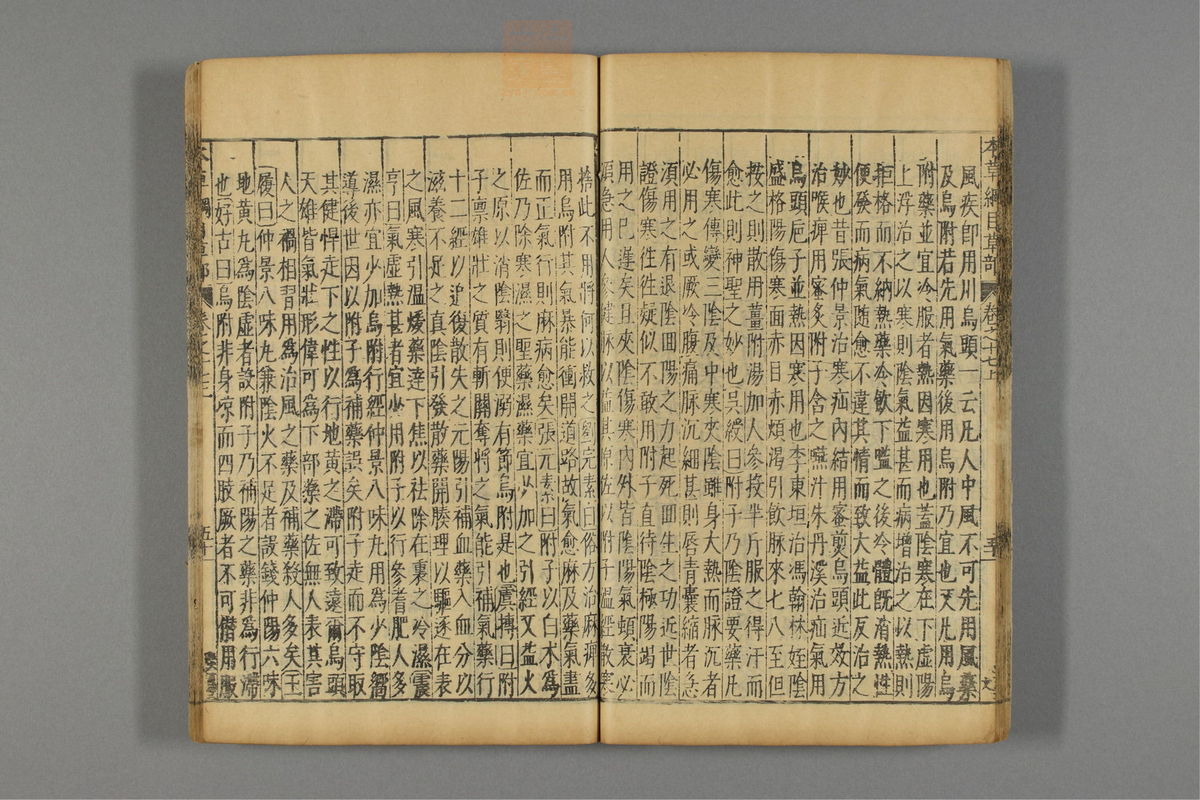 本草綱目草部 卷之十七上
風疾卽用川烏頭一云凡人中風不可先用風藥
及烏附若先用氣藥後用烏附乃宜也又凡用烏
附藥並宜冷服者熱因寒用也蓋陰寒在下虛陽
上浮治之以寒則陰氣益甚而病增治之以熱則
拒格而不納熱藥冷飲下嗌之後冷體旣消熱性
便發而病氣隨愈不違其情而致大益此反治之
妙也昔張仲景治寒疝內結用蜜煎烏頭近效方
治喉痺用蜜炙附子含之嚥汁朱丹溪治疝氣用
烏頭巵子並熱因寒用也李東垣治馮翰林姪陰
盛格陽傷寒面赤目赤煩渴引飲脉來七八至但
按之則散用薑附湯加人參投半斤服之得汗而
愈此則神聖之妙也吳綬曰附子乃陰證要藥凡
傷寒傳變三陰及中寒夾陰雖身大熱而脉沉者
必用之或厥冷腹痛脉沉細甚則唇青囊縮者急
須用之有退陰囬陽之力起死囬生之功近世陰
證傷寒徃徃疑似不敢用附子直待陰極陽竭而
用之已遲矣且夾陰傷寒內外皆陰陽氣頓衰必
須急用人參健脉以益其原佐以附子溫經散寒
捨此不用將何以救之劉完素曰俗方治麻痺多
用烏附其氣暴能衝開道路故氣愈麻及藥氣盡
而正氣行則麻病愈矣張元素曰附子以白朮爲
佐乃除寒濕之聖藥濕藥宜少加之引經又益火
之原以消陰翳則便溺有節烏附是也虞摶曰附
子禀雄壯之質有斬關奪將之氣能引補氣藥行
十二經以追復散失之元陽引補血藥入血分以
滋養不足之真陰引發散藥開腠理以驅逐在表
之風寒引溫煖藥達下焦以祛除在裏之冷濕震
亨曰氣虛熱甚者宜少用附子以行參耆肥人多
濕亦宜少加烏附行經仲景八味丸用爲少陰嚮
導後世因以附子爲補藥誤矣附子走而不守取
其健悍走下之性以行地黃之滯可致遠爾烏頭
天雄皆氣壯形偉可爲下部藥之佐無人表其害
人之禍相習用爲治風之藥及補藥殺人多矣王
履曰仲景八味丸兼陰火不足者設錢仲陽六味
地黃丸爲陰虛者設附子乃補陽之藥非爲行滯
也好古曰烏附非身凉而四肢厥者不可僣用服